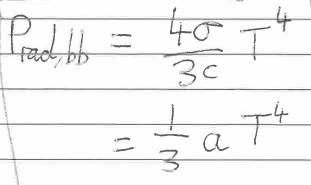 P_rad,bb = 4σ/3c T^4
= 1/3 a T^4